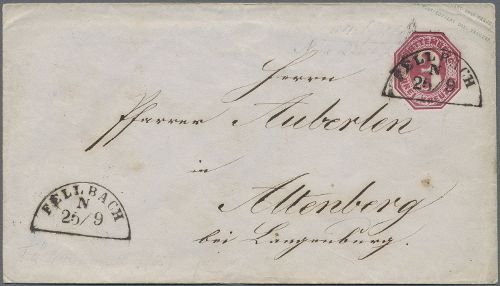 FELLBACH
N
25/9
Herrn
Pfarrer Auberlen
in
Altenberg
bei Langenburg.
FELLBACH
N
25/9